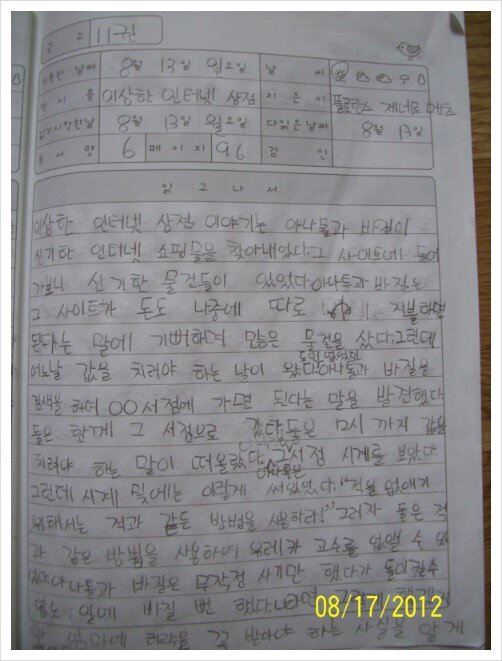 권 수 11권
기록한 날짜 8월 13일 월요일 날 씨
책 이 름 이상한 인터넷 상점 지 은 이 플로랑스 제네르 메즈
읽기시작한날 8월 13일 월요일 다읽은날짜 8월 13일
독 서 량 6 페 이 지 96 검 인
읽 고 나 서
이상한 인터넷 상점 이야기는 아나톨과 바질이
신기한 인터넷 쇼핑몰을 찾아내었다. 그 사이트에 들어
가보니 신기한 물건들이 있었다 아나톨과 바질은
그 사이트가 돈도 나중에 따로 지불하면
된다는 말에 기뻐하며 많은 물건을 샀다. 그런데
어느날 값을 치러야 하는 날이 왔다. 돈이 없었던 아나톨과 바질은
검색을 하여 OO서점에 가면 된다는 말을 발견했다
둘은 함께 그 서점으로 갔다. 둘은 12시 까지 값을
치러야 하는 말이 떠올랐다. 그 서점 시계를 보았다.
아나톨은
그런데 시계 밑에는 이렇게 써있었다. "적을 없애기
위해서는 적과 같은 방법을 사용하라!" 그러자 둘은 적
과 같은 방법을 사용하여 유레카 교수를 없앨 수 있
었다 아나톨과 바질은 무작정 사기만 했다가 돌이킬수
없는 일에 바질 번 했다
엄마에 허락을 꼭 받아야 하는 사실을 알게
08/17/2012